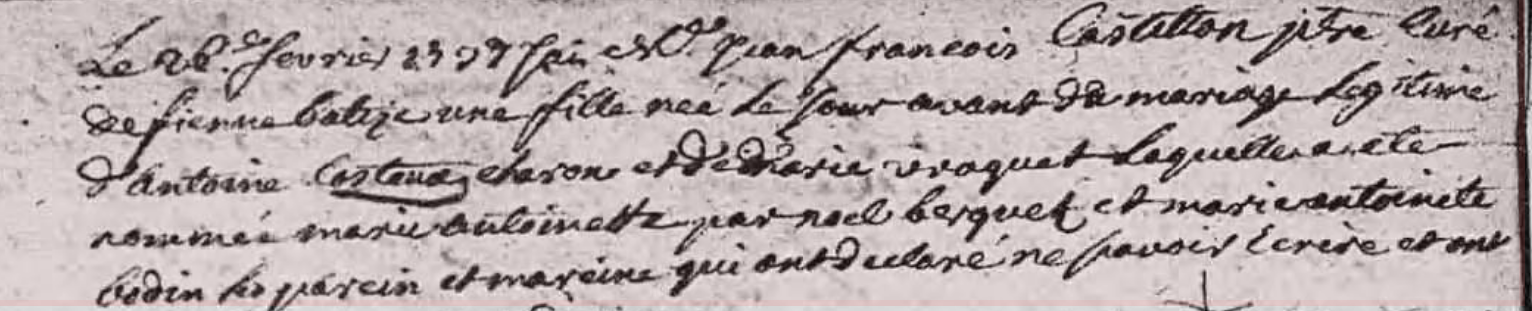 Le 26.e fevrier jai Jean francois Castillon ptre Curé
de fienne batisé une fille neé Le Jour avant du mariage Legitime
d'Antoine charon et de Marie vraquet Laquelle a ete
nommée marie antoinette par noel berquet et marie antoinete
bodin les parein et mareine qui ont declaré ne sçavoir Ecrire et ont